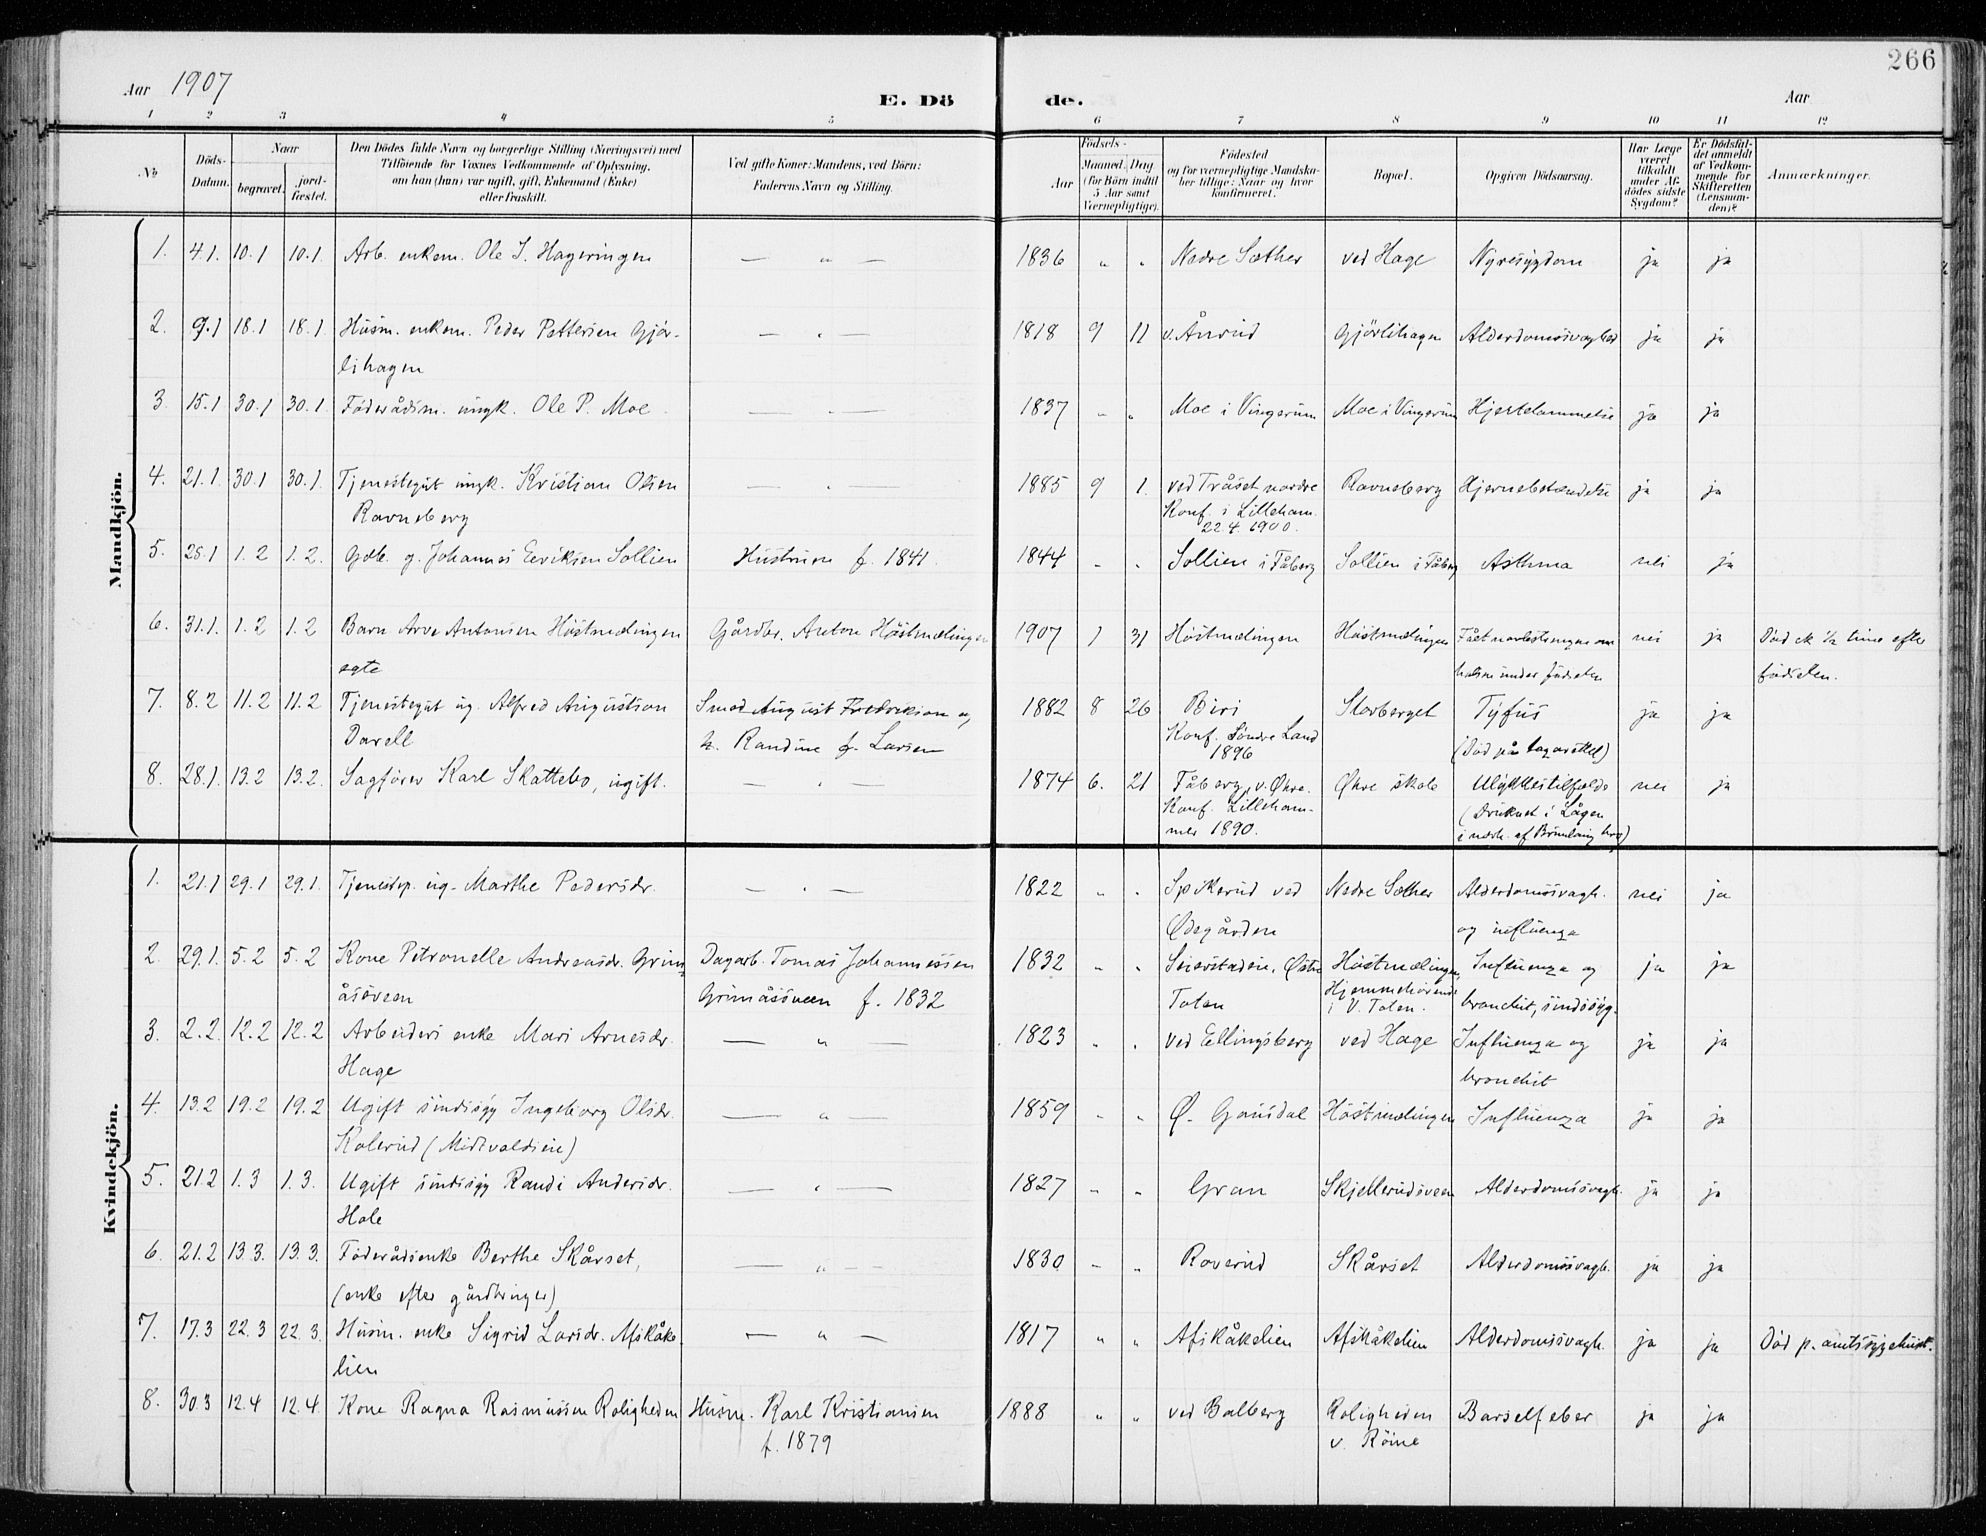 266
Aar 1907
E. Dö de.
Aar
1 2 3 4 5 6 7 8 9 10 11 12
No
Döds-Datum.
Naar
begravet.
jordfæstet.
Den Dödes fulde Navn og borgerlige Stilling (Næringsvei) med
Tilföiende for Voxnes Vedkommende af Oplysning,
om han (hun) var ugift, gift, Enkemand (Enke)
eller fraskilt.
Ved gifte Koner: Mandens, ved Börn:
Faderens Navn og Stilling.
Födsels-
Aar
Maaned. Dag
(for Börn indtil
5 Aar samt
Værnepligtige).
Födested
og for værnepligtige Mandska-
ber tillige: Naar og hvor
konfirmeret.
Bopæl.
Opgiven Dödsaarsag.
Har Læge
været
tilkaldt
under Af-
dödes sidste
Sygdom?
Er Dödsfal-
det anmeldt
af Vedkom-
mende for
Skifteretten
(Lensman-
den)?
Anmærkninger.
Mandkjön.
1. 4.1. 10.1 10.1. Arb. enkem. Ole J. Hageringen — „ — 1836 „ „ Nedre Sæther ved Hage Nyresygdom ja ja
2. 9.1 18.1 18.1. Husm. enkem. Peder Pettersen Gjör- — „ — 1818 9 11 v. Ånrud Gjörlihagen Alderdomssvaghed ja ja
lihagen
3. 15.1 30.1 30.1. Föderådsm. ungk. Ole P. Moe — „ — 1837 „ „ Moe i Vingerum Moe i Vingerum Hjertelammelse ja ja
4. 21.1. 30.1 30.1. Tjenestegut ungk. Kristian Olsen — „ — 1885 9 1. ved Tråset nordre Ravneberg Hjernebetændelse ja ja
Ravneberg Konf. i Lilleham.
22 4. 1900.
5. 25.1 1.2 1.2. Gdb. g. Johannes Eeriksen Sollien Hustruen f. 1841. 1844 „ „ Sollien i Fåberg Sollien i Fåberg Asthma nei ja
6. 31.1. 1.2 1.2 Barn Arve Antonsen Höstmælingen Gårdbr. Anton Höstmælingen 1907 1 31 Höstmælingen Höstmælingen Fået navlestrengen om nei ja Död ck ½ time efter
egte halsen under födselen födselen.
7. 8.2 11.2 11.2 Tjenestegut ug. Alfred Augustson Smed August Fredriksen og 1882 8 26 Biri Storberget Tyfus ja ja
Davell h. Randine f. Larsen Konf. Söndre Land (Död på lazarettet)
1896
8. 28.1. 13.2 13.2. Sagförer Karl Skattebo, ugift. — „ — 1874 6. 21 Fåberg, v. Økre. Økre skole Ulykkestilfælde nei ja
Konf. Lilleham- (Druknet i Lågen
mer 1890. i nærh. af Brunlaug bro)
Kvindekjön.
1. 21.1 29.1 29.1. Tjenestep. ug. Marthe Pedersdr. — „ — 1822 „ „ Spikerud ved Nedre Sæther Alderdomssvagh. nei ja
Ødegården og influenza
2. 29.1. 5.2 5.2 Kone Petronelle Andreasdr. Grim- Dagarb. Tomas Johannessen 1832 „ „ Seierstadeie, Østre Höstmælingen, Influenza og ja ja
åssveen Grimåssveen f. 1832 Toten Hjemmehörende bronchit, sindssyg.
i V. Toten.
3. 2.2. 12.2 12.2 Arbeiders enke Mari Arnesdr. — „ — 1823 „ „ ved Ellingsberg ved Hage Influenza og ja ja
Hage bronchit
4. 13.2 19.2 19.2 Ugift sindssyg Ingeborg Olsdr. — „ — 1859 „ „ Ø. Gausdal Höstmælingen Influenza ja ja
Kolerud (Midtvoldseie)
5. 21.2 1.3 1.3. Ugift sindssyg Randi Andersdr. — „ — 1827 „ „ Gran Skjellerudsveen Alderdomssvagh. ja ja
Hole
6. 21.2 13.3. 13.3. Föderådsenke Berthe Skårset, — „ — 1830 „ „ Roverud Skårset Alderdomssvagh. ja ja
(enke efter gårdbruger)
7. 17.3 22.3 22.3. Husm. enke Sigrid Larsdr. Afskåke — „ — 1817 „ „ Afskåkelien Afskåkelien Alderdomssvagh. ja ja Död p. amtssygehuset.
lien
8. 30.3 12.4 12.4. Kone Ragna Rasmussen Roligheden Husm. Karl Kristiansen 1888 „ „ ved Balberg Roligheden Barselfeber ja ja
f. 1879 v. Röine